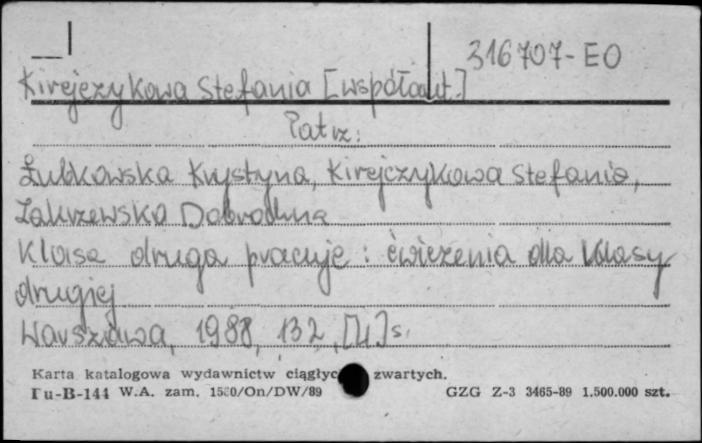 316707-EO
Kirejczykowa Stefania [współaut.]
Patrz:
Łubkowska Krystyna, Kirejczykowa Stefania,
Zakrzewska Dobrochna
Klasa druga pracuje : ćwiczenia dla klasy
drugiej
Warszawa, 1988, 132, [4] s.
Karta katalogowa wydawnictw ciągłyc zwartych.
Pu-B-144 W.A. zam. 1580/On/DW/89 GZG Z-3 3465-89 1.500.000 szt.